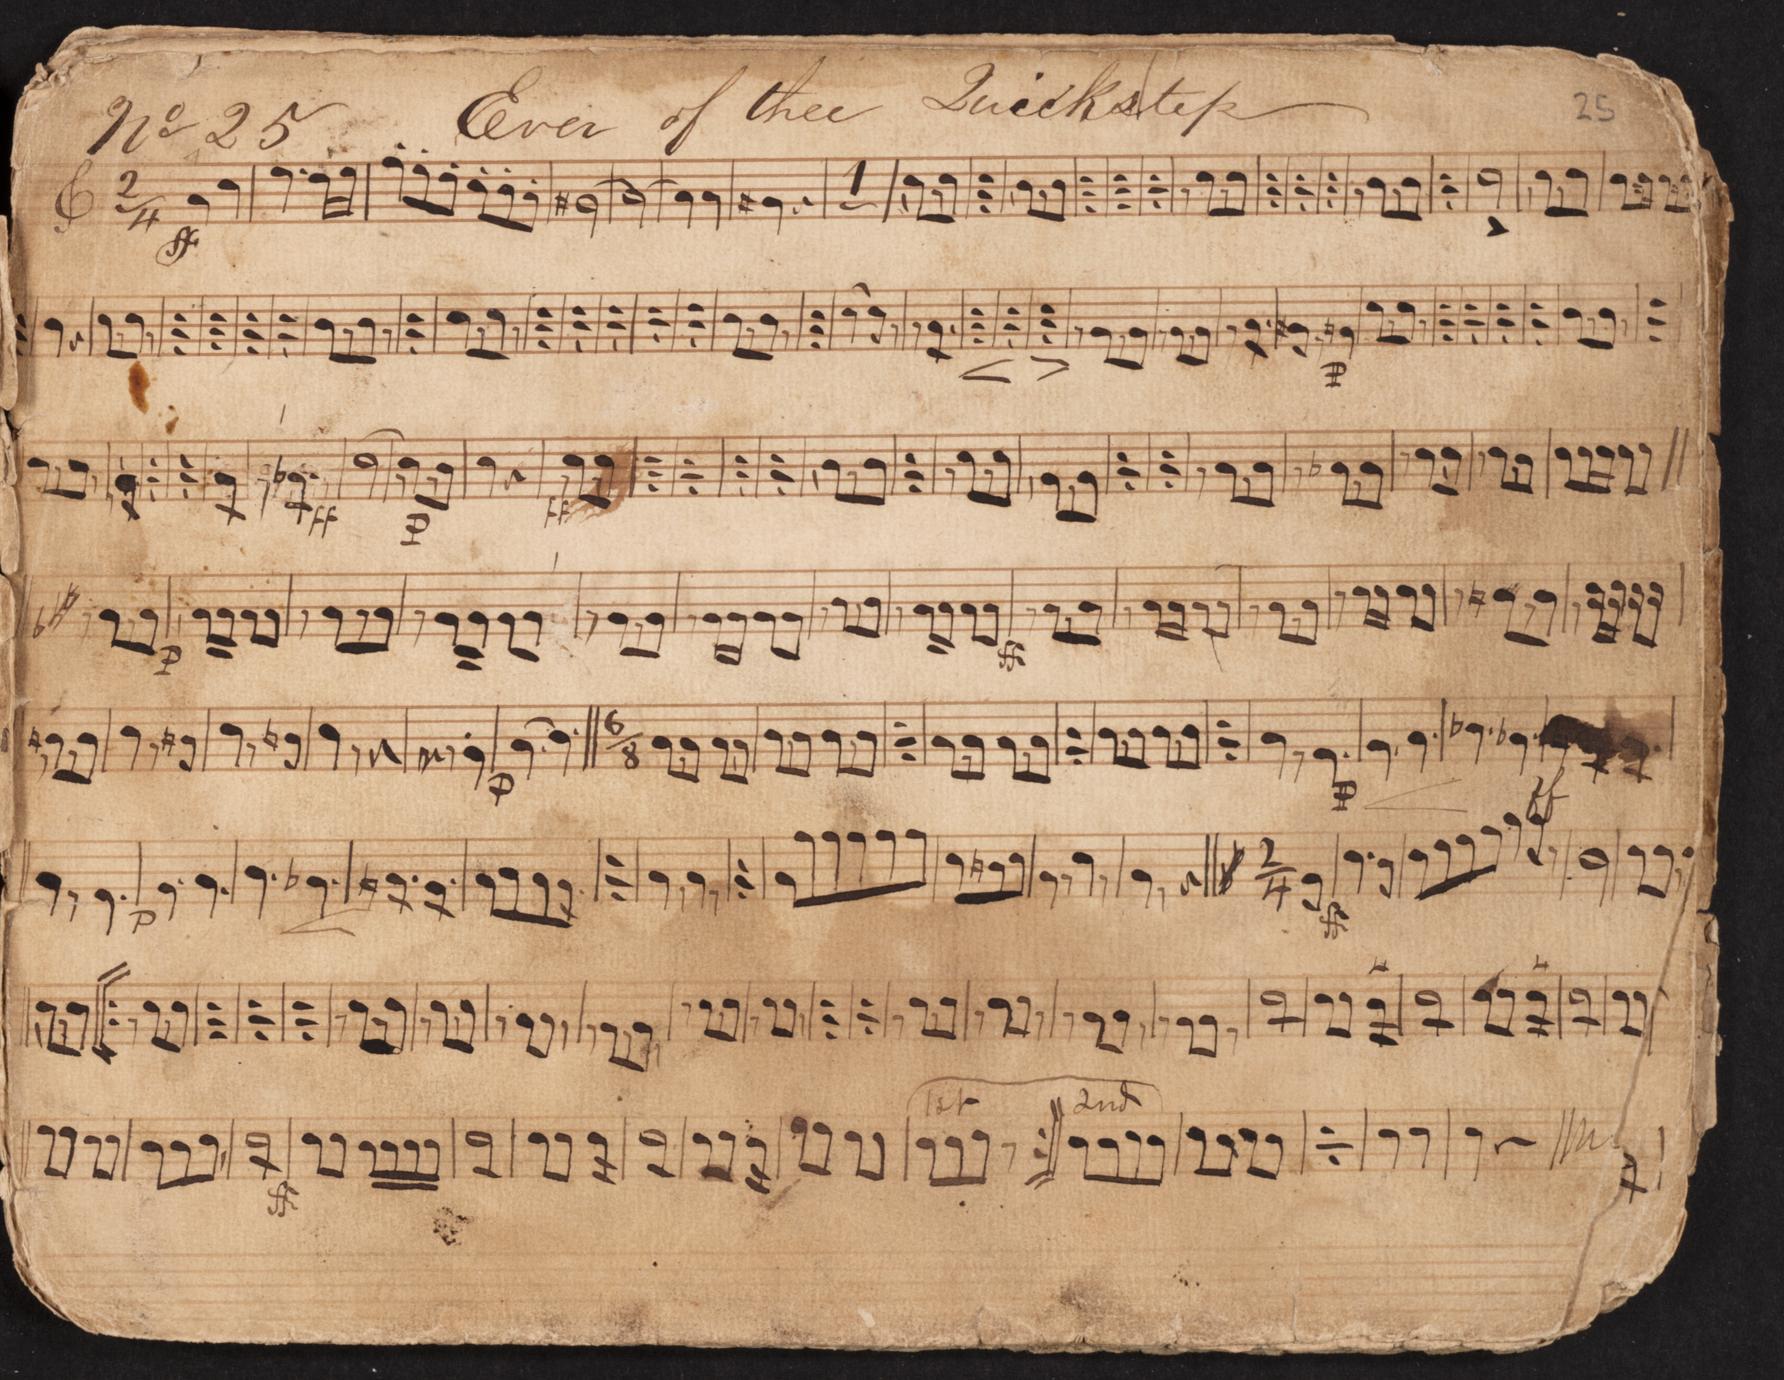 No 25 Ever of thee Quickstep 25
2/4 1
ff
p
ff p ff
p ff
6/8
p p ff
2/4
p ff
1st 2nd
ff